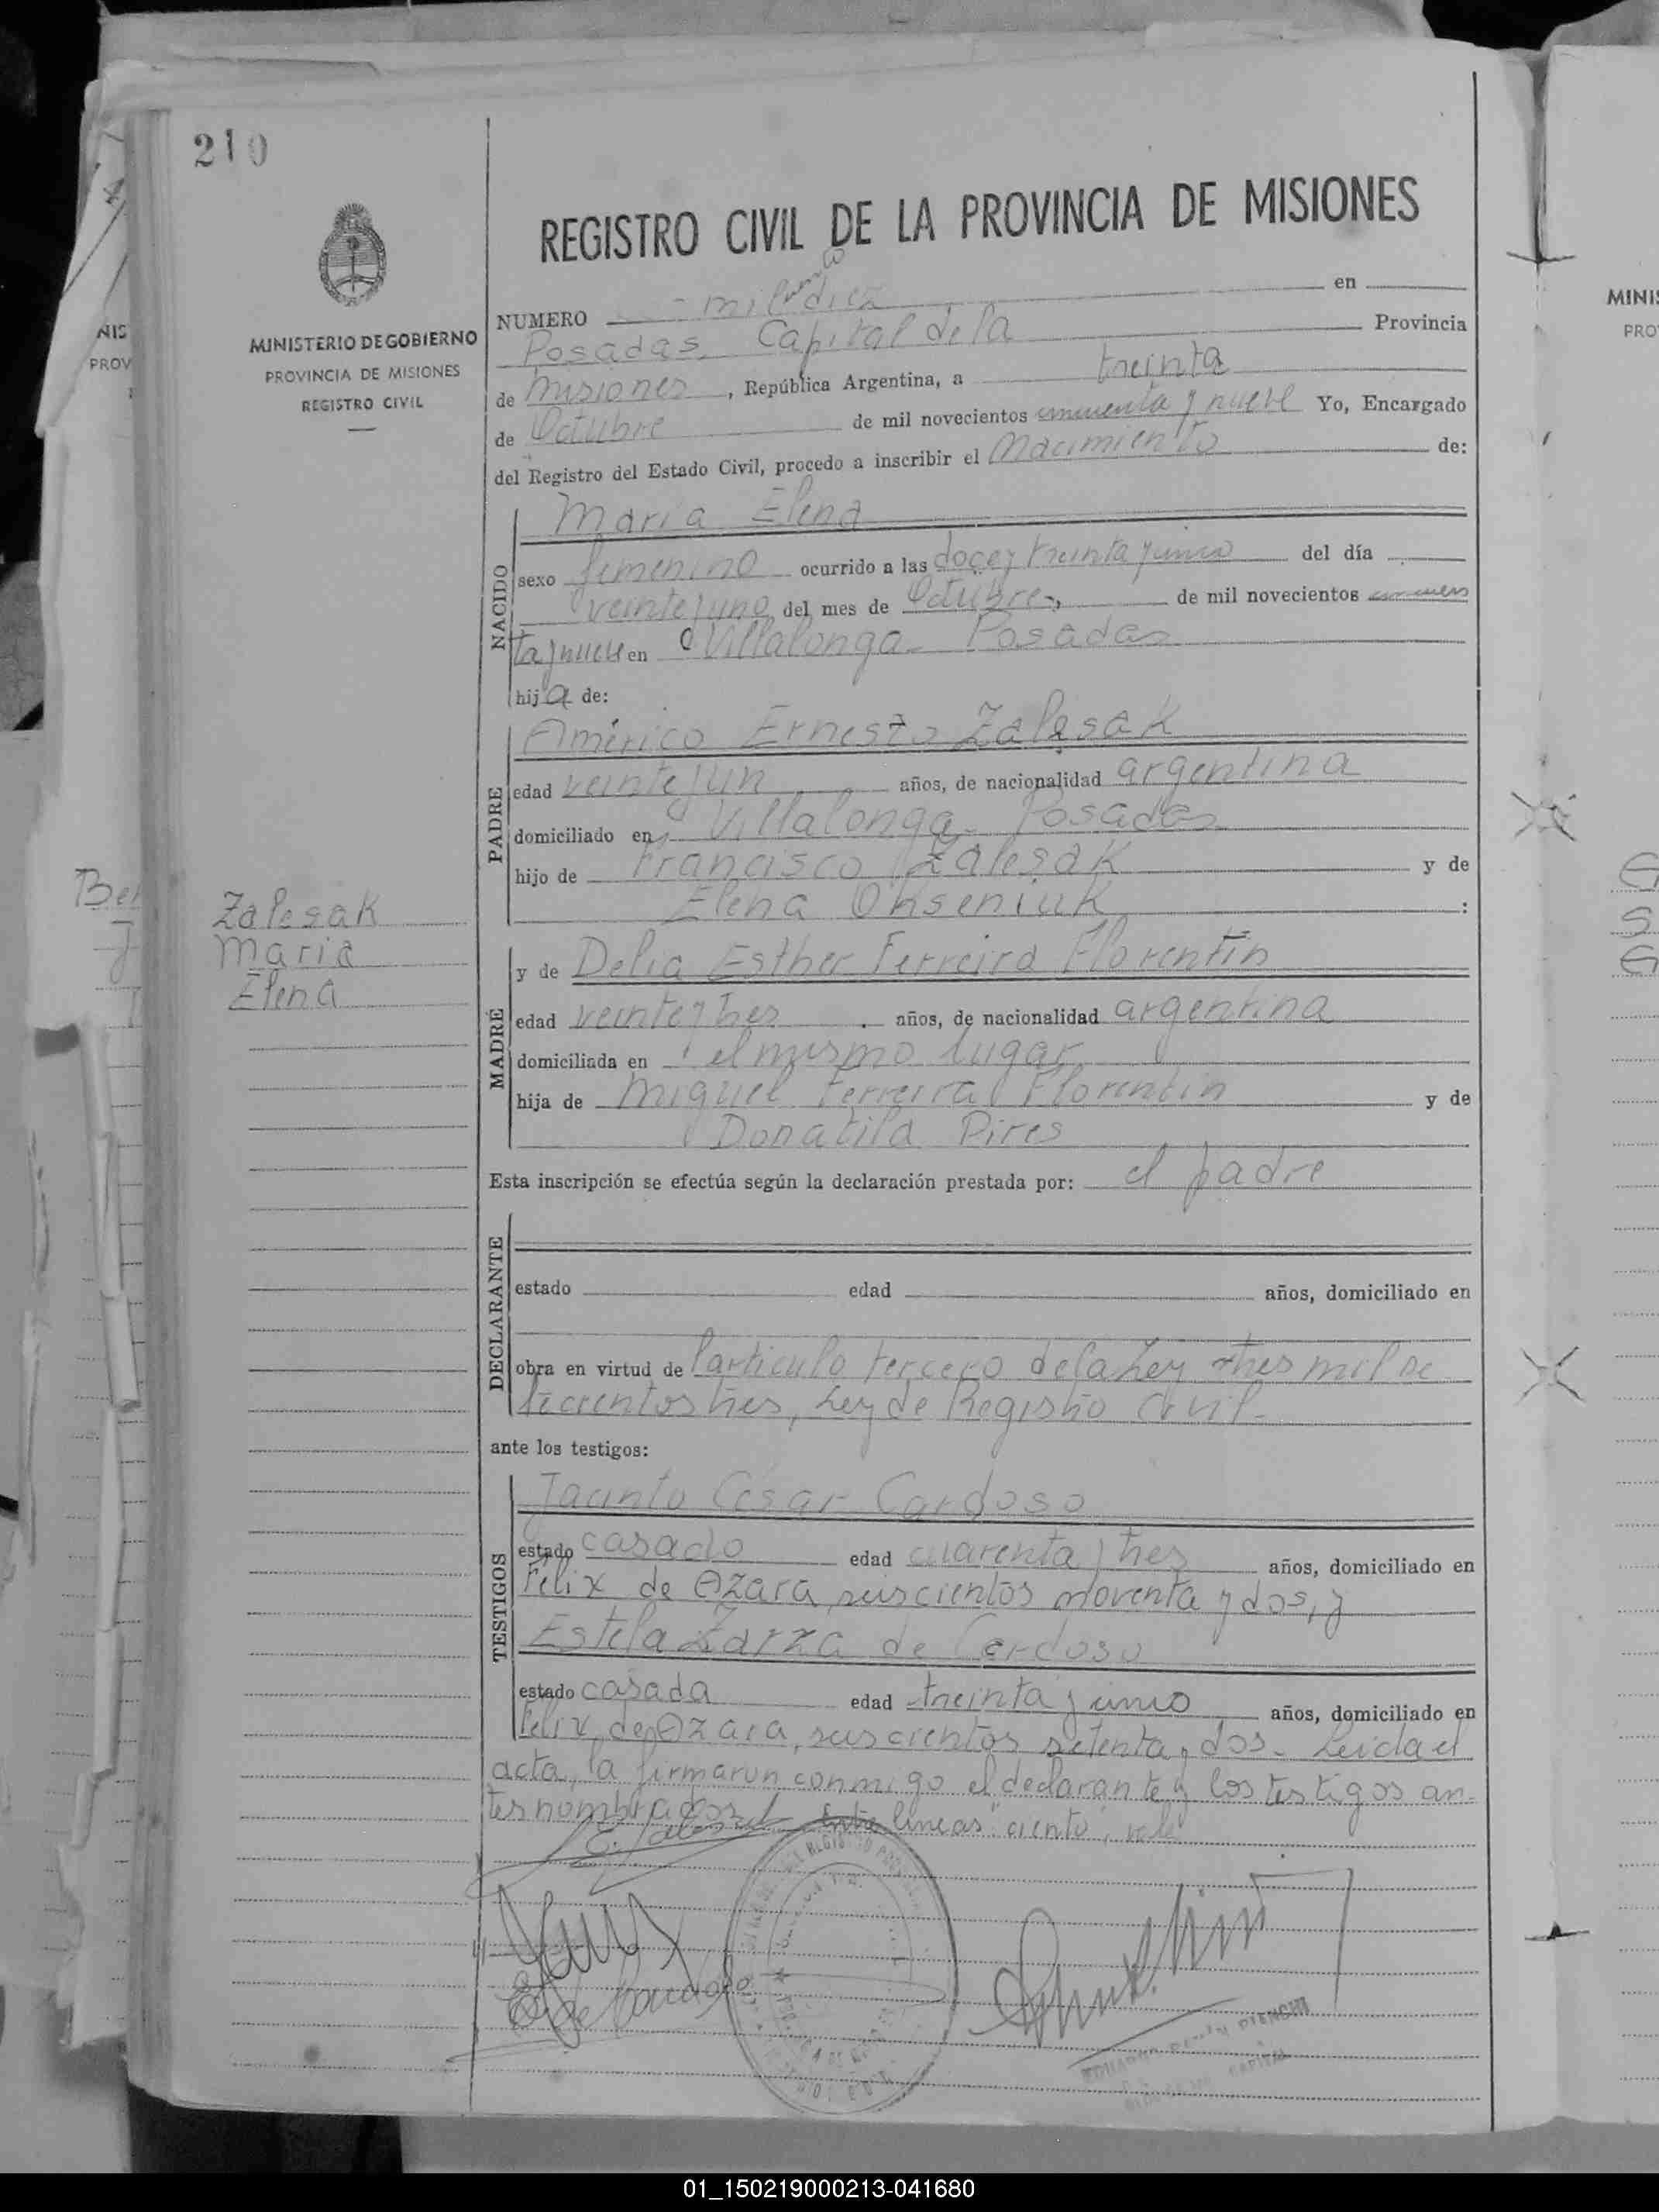 210
REGISTRO CIVIL DE LA PROVINCIA DE MISIONES
MINISTERIO DE GOBIERNO
PROVINCIA DE MISIONES
REGISTRO CIVIL
Zalesak
Maria
Elena
ciento
NUMERO mil diez en
Posadas, Capital de la Provincia
de Misiones, República Argentina, a treinta
de Octubre de mil novecientos cincuenta y nueve Yo, Encargado
del Registro del Estado Civil, procedo a inscribir el Nacimiento de:
NACIDO
Maria Elena
sexo femenino ocurrido a las doce y treinta y cinco del día
veinte y uno del mes de Octubre, de mil novecientos cincuen
ta y nueve en Villalonga - Posadas
hija de:
PADRE
Américo Ernesto Zalesak
edad veinte y un años, de nacionalidad argentina
domiciliado en Villalonga - Posadas
hijo de Francisco Zalesak y de
Elena Okseniuk :
MADRE
y de Delia Esther Ferreira Florentín
edad veinte y tres años, de nacionalidad argentina
domiciliada en el mismo lugar
hija de Miguel Ferreira Florentin y de
Donatila Pires
Esta inscripción se efectúa según la declaración prestada por: el padre
DECLARANTE
estado edad años, domiciliado en
obra en virtud de l'articulo tercero de la Ley tres mil se
tecientos tres, Ley de Registro Civil-
ante los testigos:
TESTIGOS
Jacinto César Cardoso
estado casado edad cuarenta y tres años, domiciliado en
Félix de Azara seiscientos noventa y dos, y
Estela Zarza de Cardoso
estado casada edad treinta y cinco años, domiciliado en
Felix de Azara, seiscientos setenta y dos- Leida el
acta, la firmaron conmigo el declarante y los testigos an-
tes nombrados - Entre lineas "ciento", vale
E. de Cardoso
CAPITAL
MINIS
PROV
Ber
MINIS
PROV
01_150219000213-041680